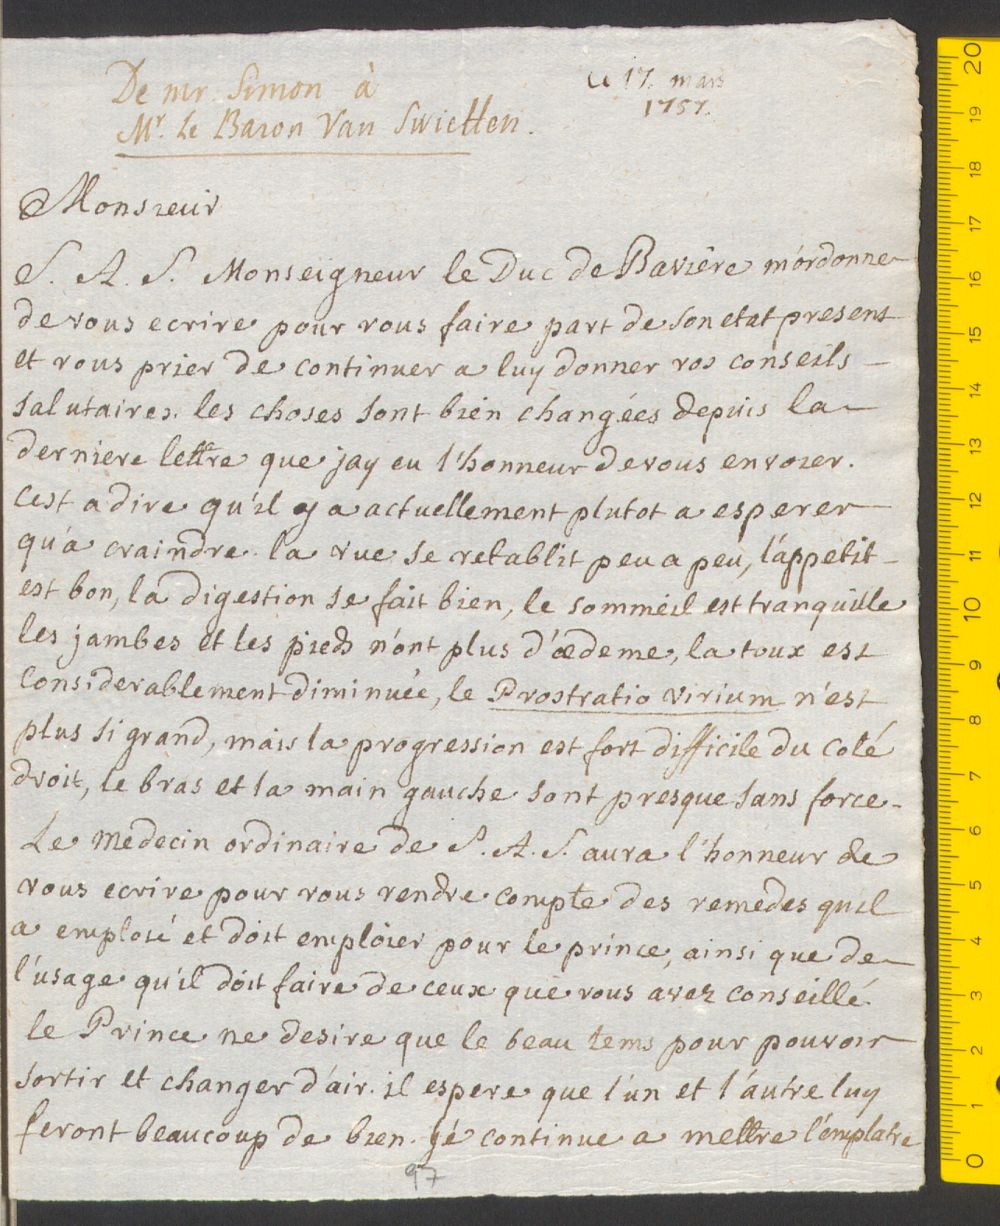 De mr Simon à
Mr. Le Baron Van Swietten.
Ce 17. mars
1757.
Monsieur
S. A. S. Monseigneur le Duc de Bavière m'órdonne
de vous ecrire pour vous faire part de son etat present
et vous prier de continuer a luy donner vos conseils
salutaires. les choses sont bien changées depuis la
derniere lettre que jay eu l'honneur de vous envoier.
cest a dire qu'il y a actuellement plutot a esperer
qu'a craindre. la vue se retablit peu a peu, l'áppetit
est bon, la digestion se fait bien, le sommeil est tranquille
les jambes et les pieds n'ont plus d'œdeme, la toux est
Considerablement diminuée, le Prostratio virium n'est
plus si grand, mais la progression est fort difficile du coté
droit, le bras et la main gauche sont presque sans force.
Le Medecin ordinaire de S. A. S. aura l'honneur de
vous ecrire pour vous rendre compte des remedes quil
a emploié et doit emploier pour le prince, ainsi que de
l'usage qu'il doit faire de ceux que vous avez conseillé.
le Prince ne desire que le beau tems pour pouvoir
sortir et changer d'air. il espere que l'un et l'autre luy
feront beaucoup de bien. je continue a mettre l'emplatre
97
20
19
18
17
16
15
14
13
12
11
10
9
8
7
6
5
4
3
2
1
0